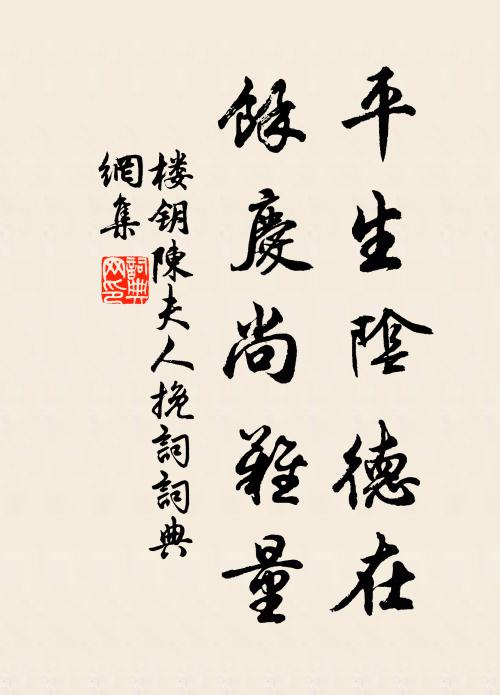 平生陰德在
餘慶尚難量
楼钥陳夫人挽詞詞典
網集
詞典網印